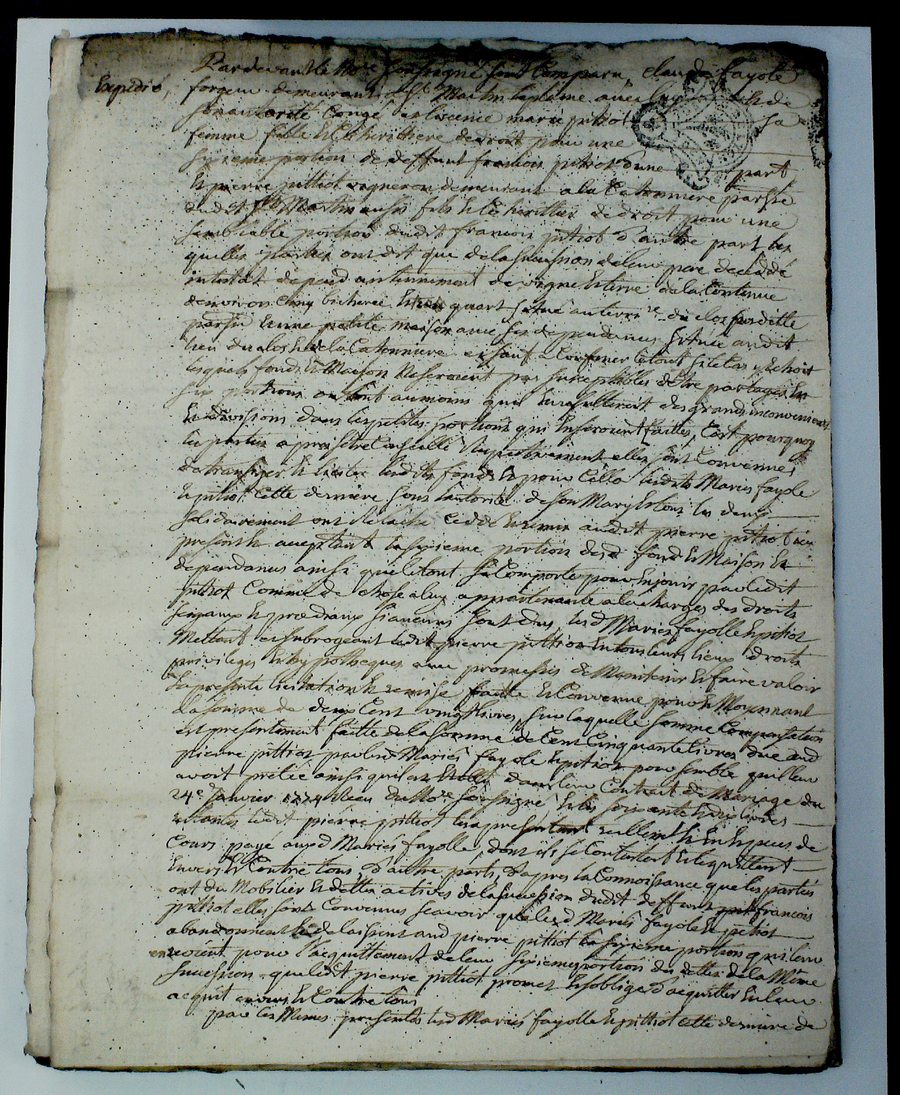 Pardevant le No.re Soussigné sont Comparu, claude fayole
Expedié,
forgeur demeurant a St Martin laplaine avec de
son autorité Congé et Licence marie pitiot sa
femme fille et Cohéritiere de droit pour une
sixieme portion de deffunt francois pitiot d'une part
Et pierre pittiot vigneron demeurant a la Catonniere parsse
dudit St Martin aussi fils et Coheritier de droit pour une
semblable portion dudit francois pitiot d'autre part les
quelles parties ont dit que de la succession de leur pere decedé
intestat depend un tinnement de vigne et terre de la Contenue
d'environ Cinq bicherée et un quart situé au terroire du clos susditte
parsse et une petite maison avec ses dependances située audit
lieu du clos et de la Catonniere a Confiner le tout
lesquels fonds et Maison ne seroient pas susceptibles detre partagés En
six portions ou dont au moins qu'il en resulteroit des grands inconvenients
Et divisions dans les petites portions qui en seroient faittes, C'est pourquoy
les parties apres être Consulté elles sont Convenues
de transiger et liciter lesdits fonds Et pour Cella lesdits Mariés fayole
Et pitiot Cette derniere sous l'autorité de son Mary Et tous les deux
solidairement ont relaché Cedé et remis audit pierre pitiot icy
present et acceptant la sixieme portion desd. fonds et Maison Et
dependances ainsi que le tout se Comporte pour En jouir par ledit
pitiot Comme de chose a luy appartenante a la charge des droits
seigneuriaux sont dus, lesd Mariés fayolle et pitiot
Mettant et subrogeant ledit pierre pittiot En tous leurs lieux droits
privileges et hypotheques avec promesses de Maintenir et faire valoir
La presente licitation et remise faitte et Convenue pour et Moyennant
la somme de deux Cent vingt livres, sur laquelle somme Compensation
est presentement faitte de la somme de Cent Cinquante livres due aud
pierre pittiot par lesd Mariés fayole et pitiot pour semble qu'il leur
avoit pretée ainsi qu'il est Etabli dans leur Contract de Mariage du
24e Janvier reçu du No.re soussigné Et les soixante et dix livres
restantes ledit pierre pittiot les a presentement reellement et En Espèces de
Cours payé auxd Mariés fayolle, dont ils se Contentent Et le quittent
Envers et Contre tous D'autre part, D'apres la Connoissance que les parties
ont du Mobilier et dettes actives de la succession dudit deffunt francois
pittiot elles sont Convenues scavoir que lesd Mariés fayole Et pitiot
abandonnent et delaissent aud pierre pittiot la sixieme portion qui leur
revient pour l'acquittement de leur sixieme portion des dettes de la Même
succession que ledit pierre pittiot promet et s'oblige d'acquitter En leur
acquit envers Et Contre tous
par les Mêmes presentes lesd Mariés fayolle Et pitiot Cette derniere de